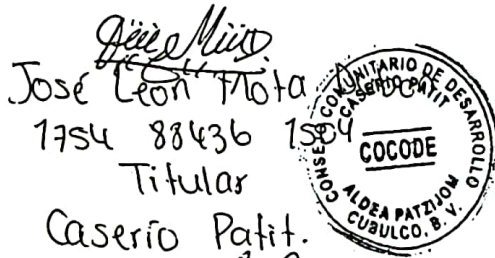 José León Mota
1754 88436 1504
Titular
Caserío Patit.
CONSEJO COMUNITARIO DE DESARROLLO
CASERIO PATIT
COCODE
ALDEA PATZIJOM
CUBULCO, B. V.